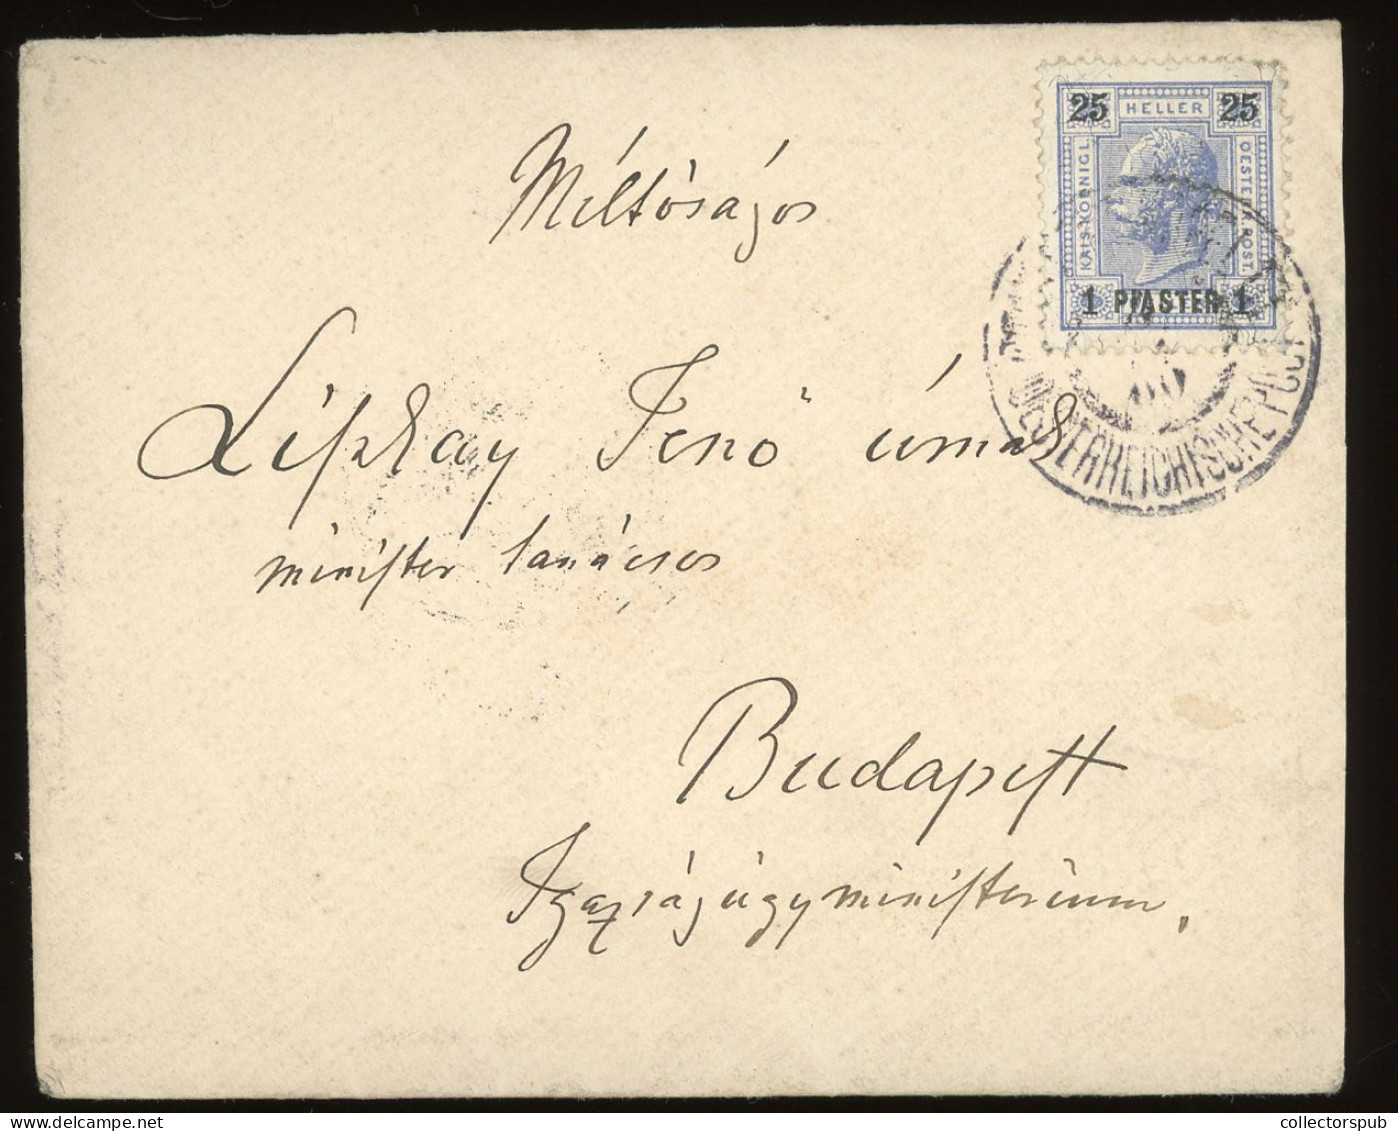 25 HELLER 25
KAIS. KOENIGL.
OESTERR. POST.
1 PIASTER 1
OESTERREICHISCHE POST
Méltóságos
Lipkay Jenő úrnak
minister tanácsos
Budapest
Igazságügyministerium.
collectorspub